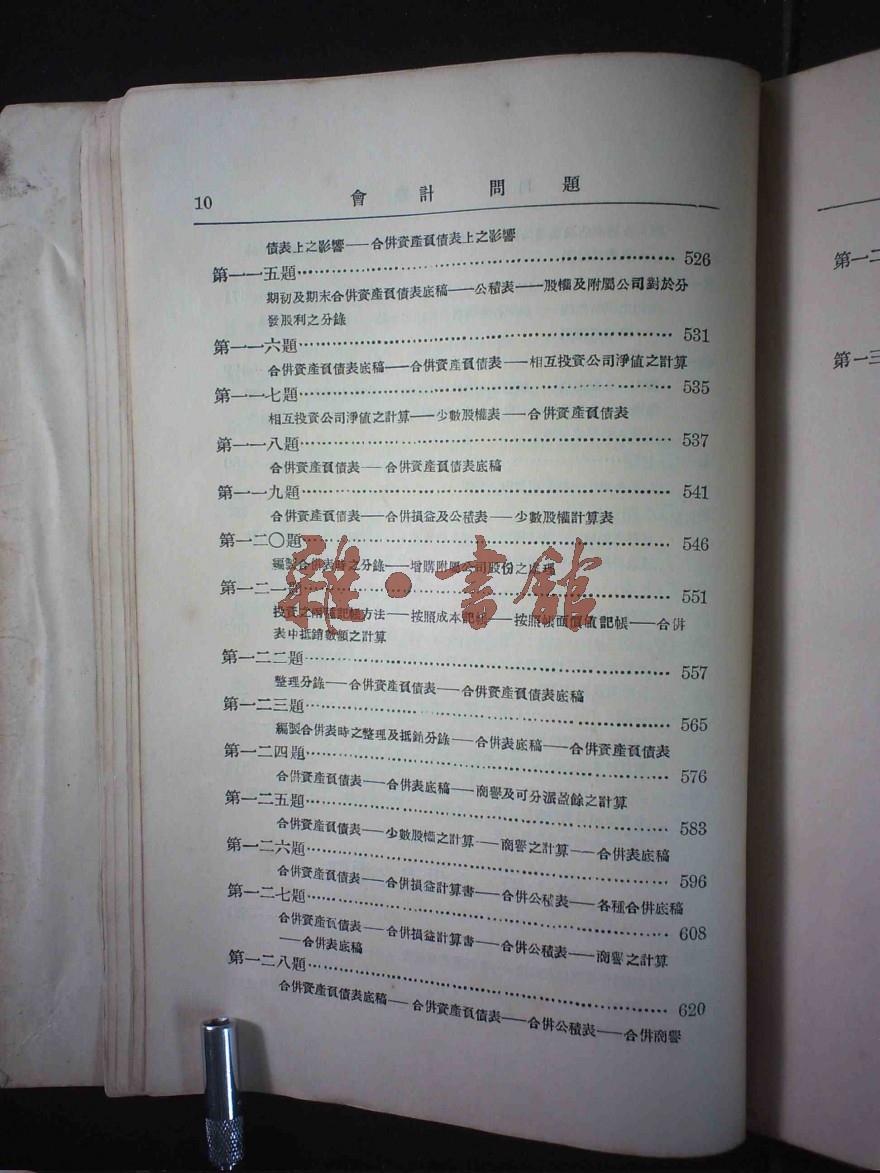 10 會計問題
債表上之影響——合併資產負債表上之影響
第一一五題 526
期初及期末合併資產負債表底稿——公積表——股權及附屬公司對於分
發股利之分錄
第一一六題 531
合併資產負債表底稿——合併資產負債表——相互投資公司淨值之計算
第一一七題 535
相互投資公司淨值之計算——少數股權表——合併資產負債表
第一一八題 537
合併資產負債表——合併資產負債表底稿
第一一九題 541
合併資產負債表——合併損益及公積表——少數股權計算表
第一二〇題 546
編製合併表時之分錄——增購附屬公司股份之處理
第一二一題 551
投資之兩種記帳方法——按照成本記帳——按照帳面價值記帳——合併
表中抵銷數額之計算
第一二二題 557
整理分錄——合併資產負債表——合併資產負債表底稿
第一二三題 565
編製合併表時之整理及抵銷分錄——合併表底稿——合併資產負債表
第一二四題 576
合併資產負債表——合併表底稿——商譽及可分派盈餘之計算
第一二五題 583
合併資產負債表——少數股權之計算——商譽之計算——合併表底稿
第一二六題 596
合併資產負債表——合併損益計算書——合併公積表——各種合併底稿
第一二七題 608
合併資產負債表——合併損益計算書——合併公積表——商譽之計算
——合併表底稿
第一二八題 620
合併資產負債表底稿——合併資產負債表——合併公積表——合併商譽
第一二
第一三
雜·書館